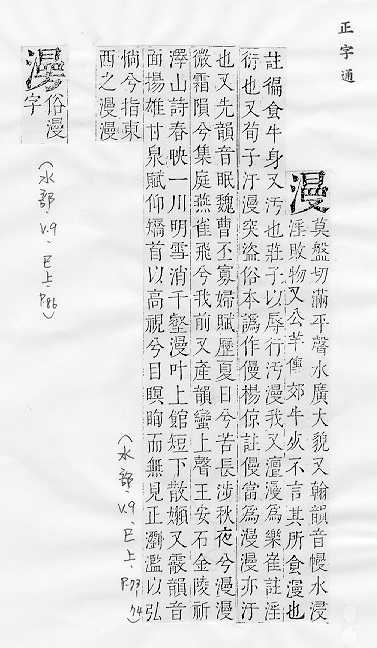 正字通
漫
莫盤切滿平聲水廣大貌又翰韻音幔水浸
淫敗物又公羊傳郊牛灾不言其所食漫也
註徧食牛身又汚也莊子以辱行汚漫我又澶漫爲樂崔註淫
衍也又荀子汙漫突盗俗本譌作僈楊倞註僈當爲漫漫亦汙
也又先韻音眠魏曹丕寡婦賦歷夏日兮苦長涉秋夜兮漫漫
微霜隕兮集庭燕雀飛兮我前又產韻蠻上聲王安石金陵祈
澤山詩春映一川明雪消千壑漫叶上館短下散嬾又霰韻音
面揚雄甘泉賦仰矯首以高視兮目瞑眴而無見正瀏濫以弘
惝兮指東
西之漫漫
(水部. V.9. 巳上. P.73 74)
俗漫
字
(水部. V.9. 巳上. P.86)